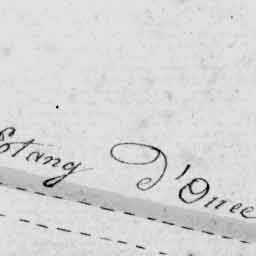 Etang D'Onee